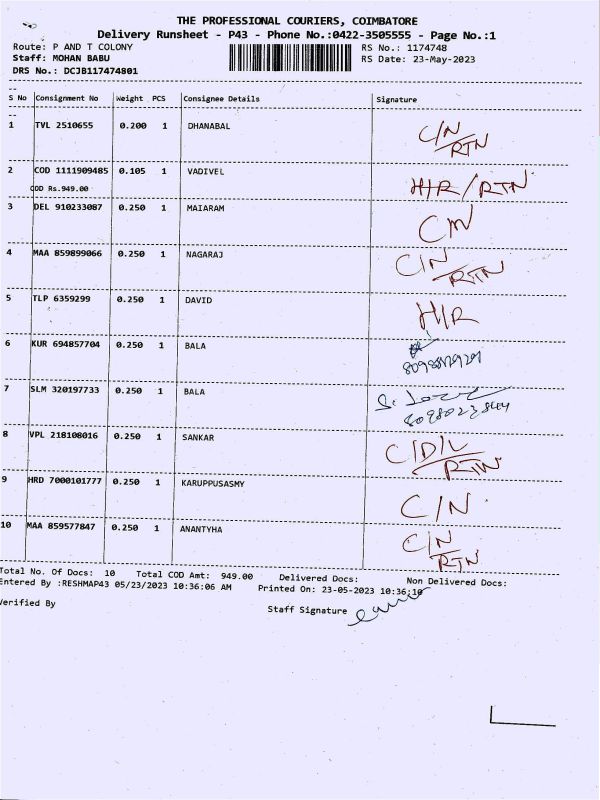 THE PROFESSIONAL COURIERS, COIMBATORE
Delivery Runsheet - P43 - Phone No.:0422-3505555 - Page No.:1
Route: P AND T COLONY RS No.: 1174748
Staff: MOHAN BABU RS Date: 23-May-2023
DRS No.: DCJB117474801
S No Consignment No Weight PCS Consignee Details Signature
1 TVL 2510655 0.200 1 DHANABAL C/N RTN
2 COD 1111909485 0.105 1 VADIVEL H/R/RTN
COD Rs.949.00
3 DEL 910233087 0.250 1 MAIARAM C/N
4 MAA 859899066 0.250 1 NAGARAJ C/N RTN
5 TLP 6359299 0.250 1 DAVID H/R
6 KUR 694857704 0.250 1 BALA
7 SLM 320197733 0.250 1 BALA
8 VPL 218108016 0.250 1 SANKAR C/D/L RTN
9 HRD 7000101777 0.250 1 KARUPPUSASMY C/N
10 MAA 859577847 0.250 1 ANANTYHA C/N RTN
Total No. Of Docs: 10 Total COD Amt: 949.00 Delivered Docs: Non Delivered Docs:
Entered By :RESHMAP43 05/23/2023 10:36:06 AM Printed On: 23-05-2023 10:36:10
Verified By Staff Signature